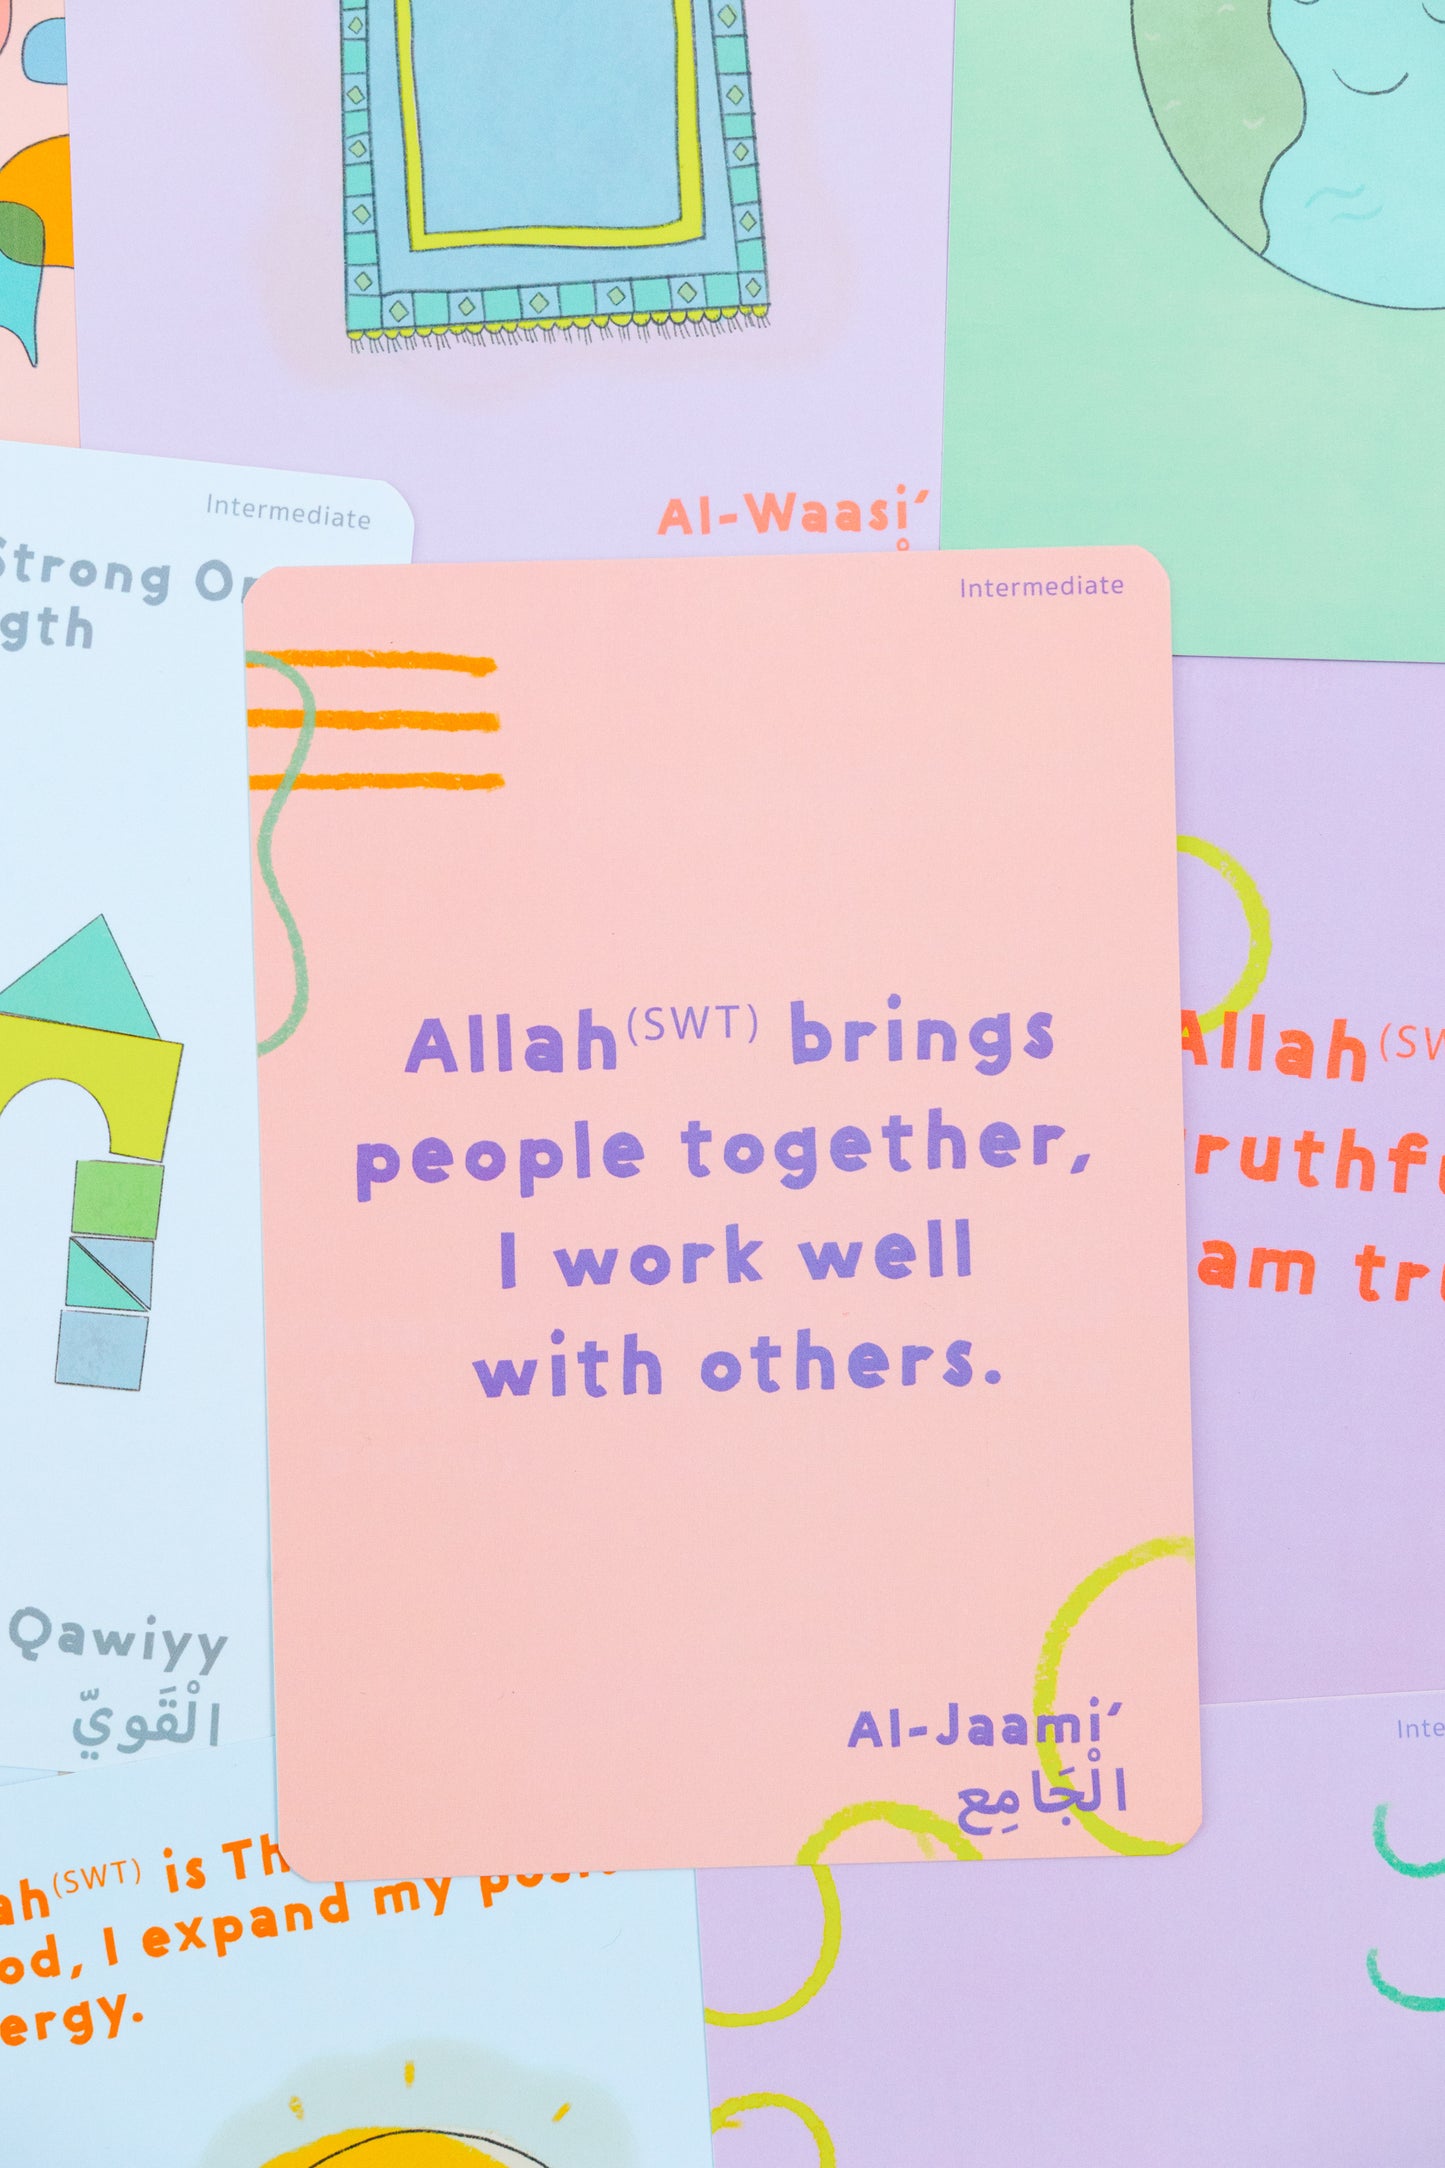 Al-Waasi´
Intermediate
Strong
gth
Qawiyy
الْقَوِيّ
Intermediate
Allah(SWT) brings
people together,
I work well
with others.
Al-Jaami´
الْجَامِع
Allah
am
is
I expand my